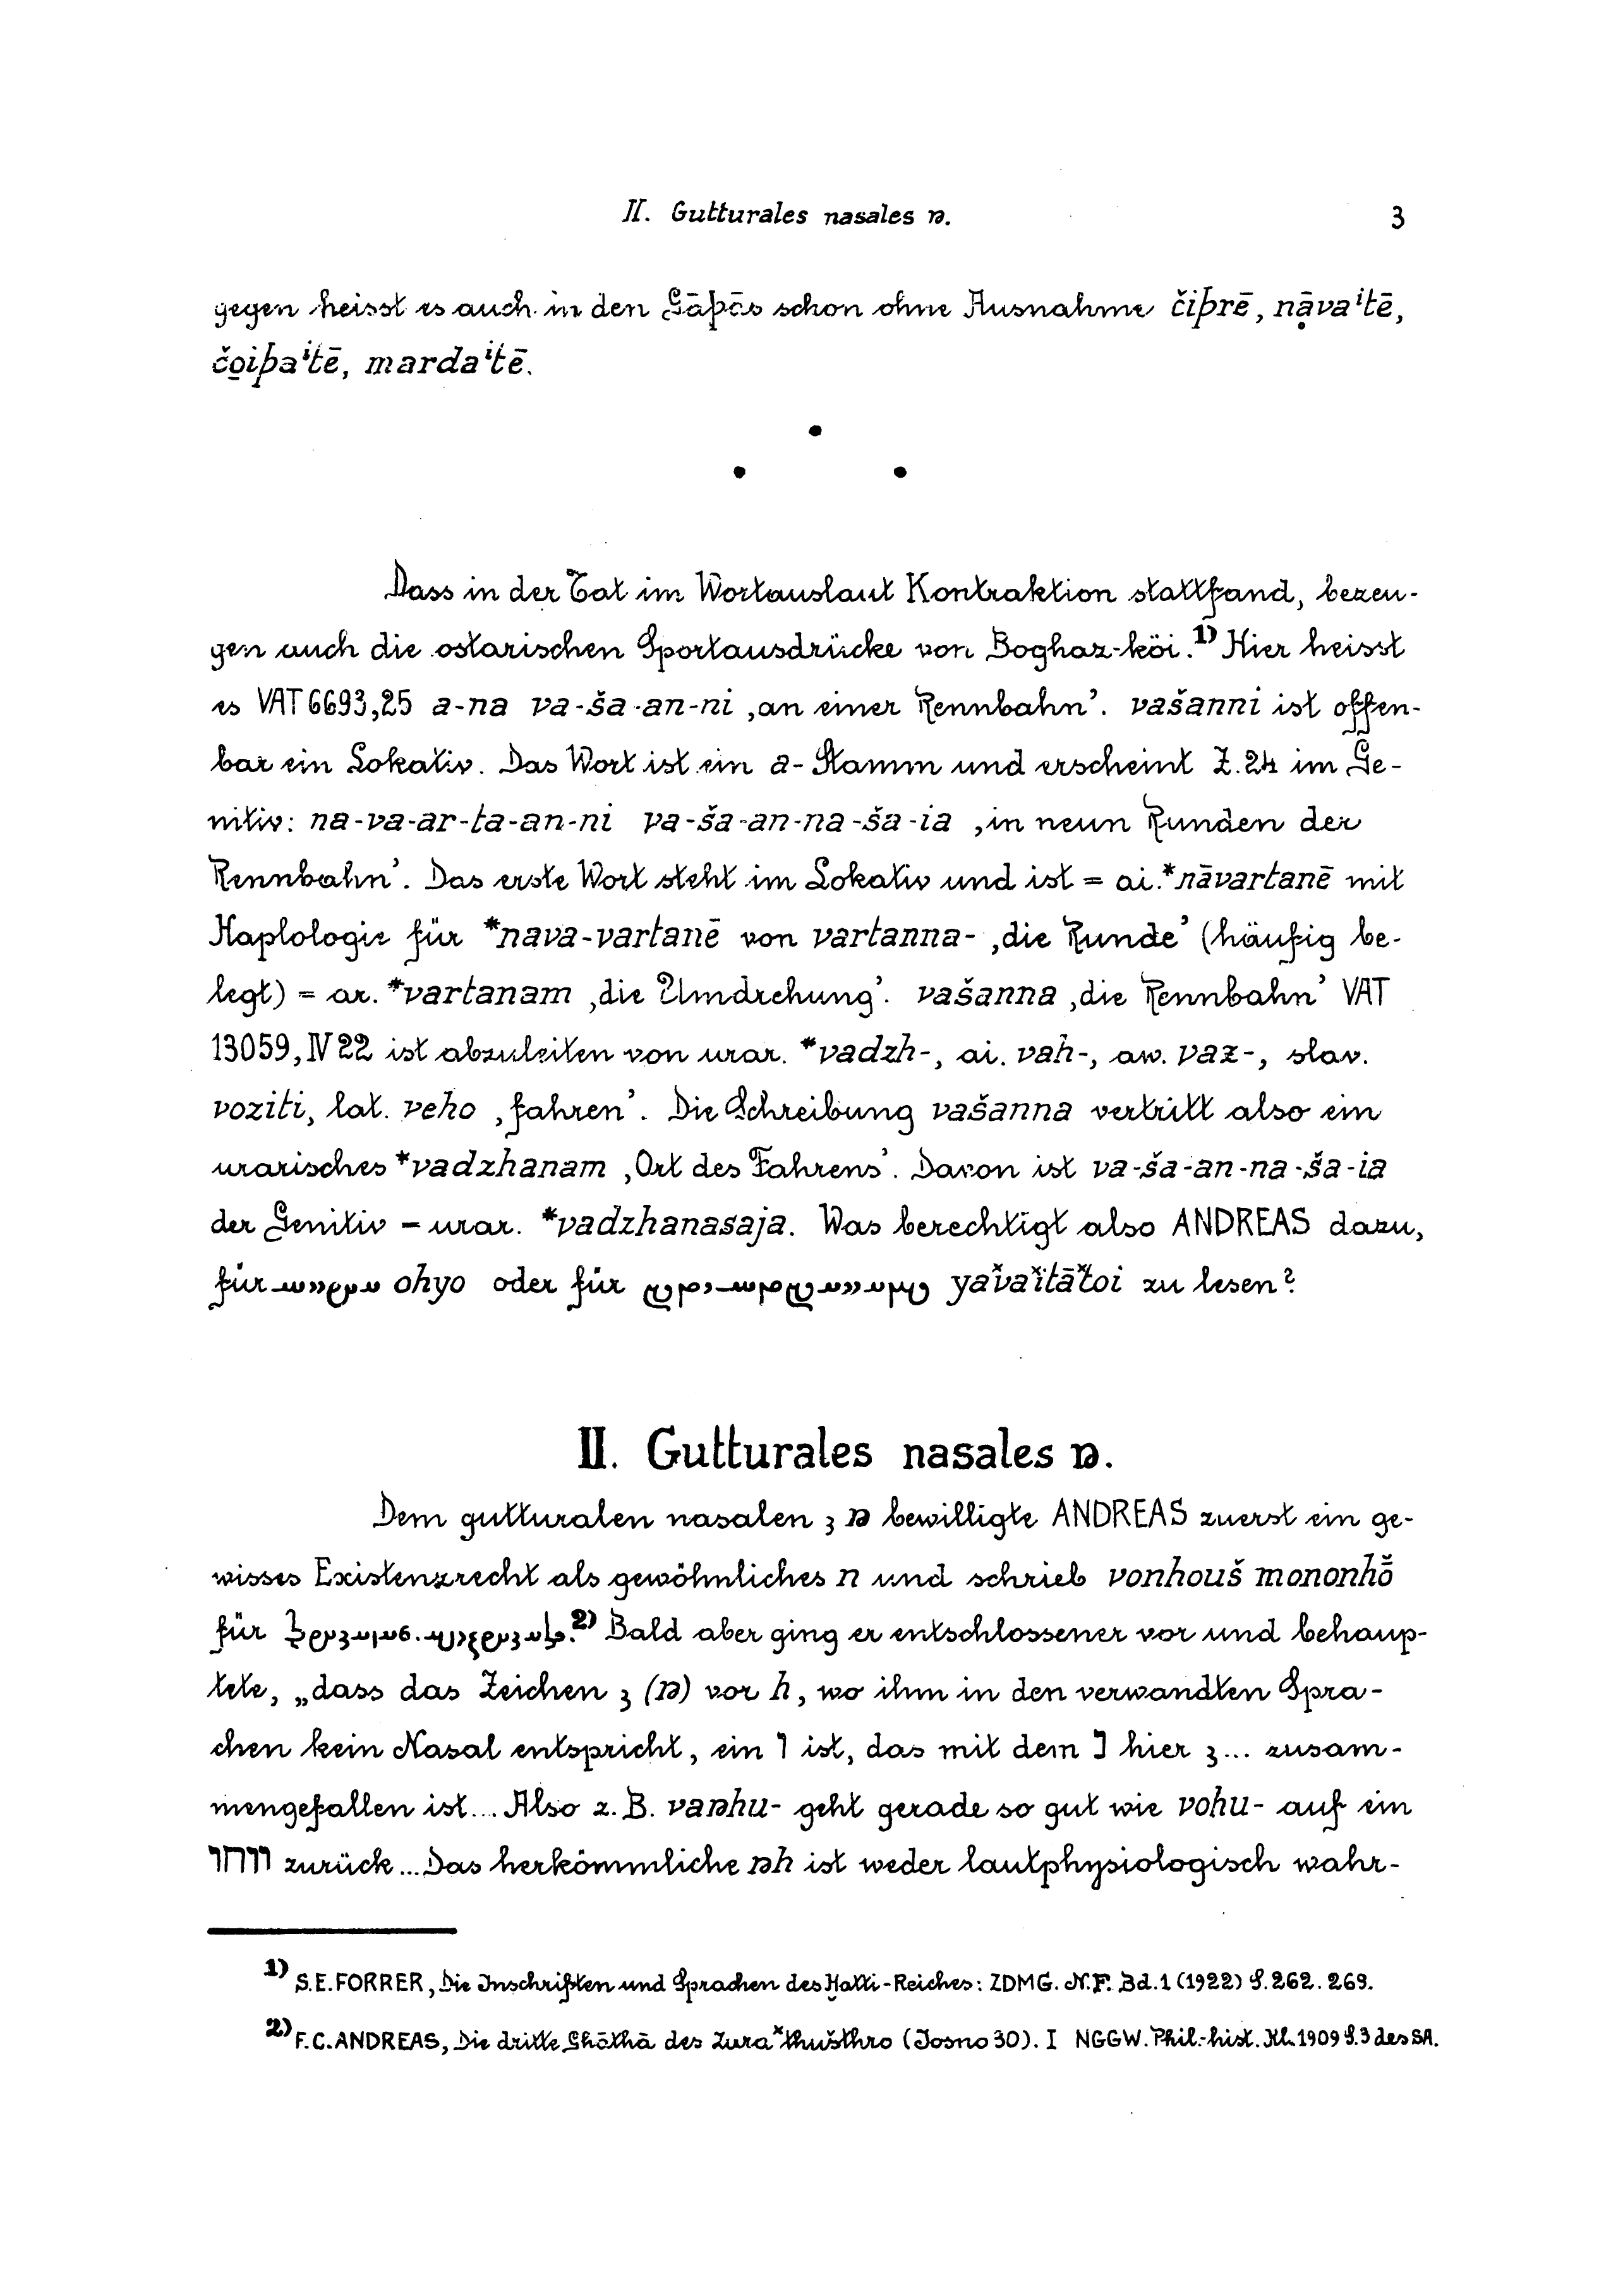 II. Gutturales nasales ŋ. 3
gegen heisst es auch in den Gāþās schon ohne Ausnahme čiþrē, nạ̄vaⁱtē,
čo̱iþaⁱtē, mardaⁱtē.
Dass in der Tat im Wortauslaut Kontraktion stattfand, bezeu-
gen auch die ostarischen Sportausdrücke von Boghaz-köi.¹⁾ Hier heisst
es VAT 6693,25 a-na va-ša-an-ni ‚an einer Rennbahn’. vašanni ist offen-
bar ein Lokativ. Das Wort ist ein a-Stamm und erscheint Z. 24 im Ge-
nitiv: na-va-ar-ta-an-ni va-ša-an-na-ša-ia ‚in neun Runden der
Rennbahn’. Das erste Wort steht im Lokativ und ist = ai. *nāvartanē mit
Haplologie für *nava-vartanē von vartanna- ‚die Runde’ (häufig be-
legt) = ar. *vartanam ‚die Umdrehung’. vašanna ‚die Rennbahn’ VAT
13059, IV 22 ist abzuleiten von urar. *vadzh-, ai. vah-, aw. vaz-, slav.
voziti, lat. veho ‚fahren’. Die Schreibung vašanna vertritt also ein
urarisches *vadzhanam ‚Ort des Fahrens’. Davon ist va-ša-an-na-ša-ia
der Genitiv = urar. *vadzhanasaja. Was berechtigt also ANDREAS dazu,
für ohyo oder für zu lesen?
II. Gutturales nasales ŋ.
Dem gutturalen nasalen ŋ bewilligte ANDREAS zuerst ein ge-
wisses Existenzrecht als gewöhnliches n und schrieb vonhouš mononhō̆
für ²⁾ Bald aber ging er entschlossener vor und behaup-
tete, „dass das Zeichen (ŋ) vor h, wo ihm in den verwandten Spra-
chen kein Nasal entspricht, ein ist, das mit dem hier ... zusam-
mengefallen ist... Also z. B. vaŋhu- geht gerade so gut wie vohu- auf ein
zurück... Das herkömmliche ŋh ist weder lautphysiologisch wahr-
¹⁾ S. E. FORRER, Die Inschriften und Sprachen des Ḫatti-Reiches: ZDMG. N.F. Bd. 1 (1922) S. 262. 269.
²⁾ F. C. ANDREAS, Die dritte Ghāthā des Zuraˣthušthro (Josno 30). I NGGW. Phil.-hist. Kl. 1909 S. 3 des SA.